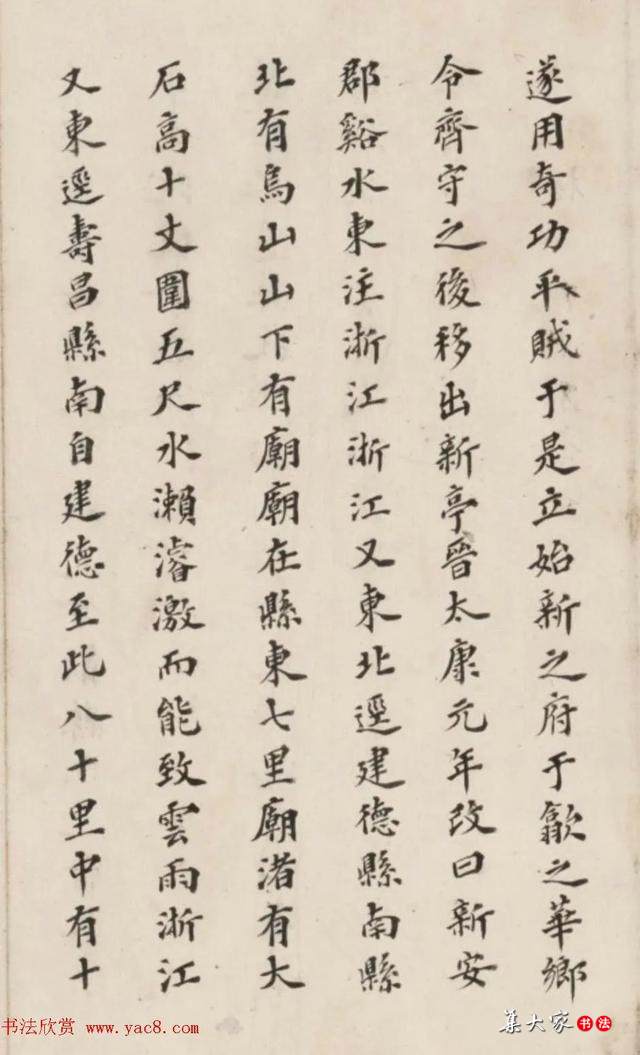 遂用奇功平賊于是立始新之府于歙之華鄉
令齊守之後移出新亭晉太康元年改曰新安
郡谿水東注浙江浙江又東北逕建德縣南縣
北有烏山山下有廟廟在縣東七里廟渚有大
石高十丈圍五尺水瀨濬激而能致雲雨浙江
又東逕壽昌縣南自建德至此八十里中有十
书法欣赏 www.yac8.com
集大家 书法